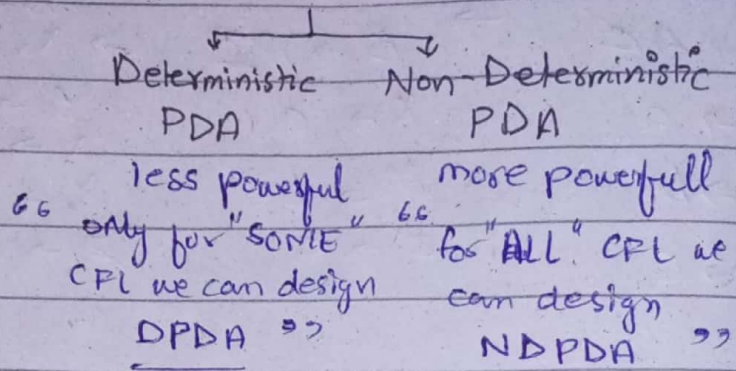 Deterministic
PDA
less powerful
“ only for "SOME"
CFL we can design
DPDA ”
Non-Deterministic
PDA
more powerfull
“ for "ALL" CFL we
can design
NDPDA ”